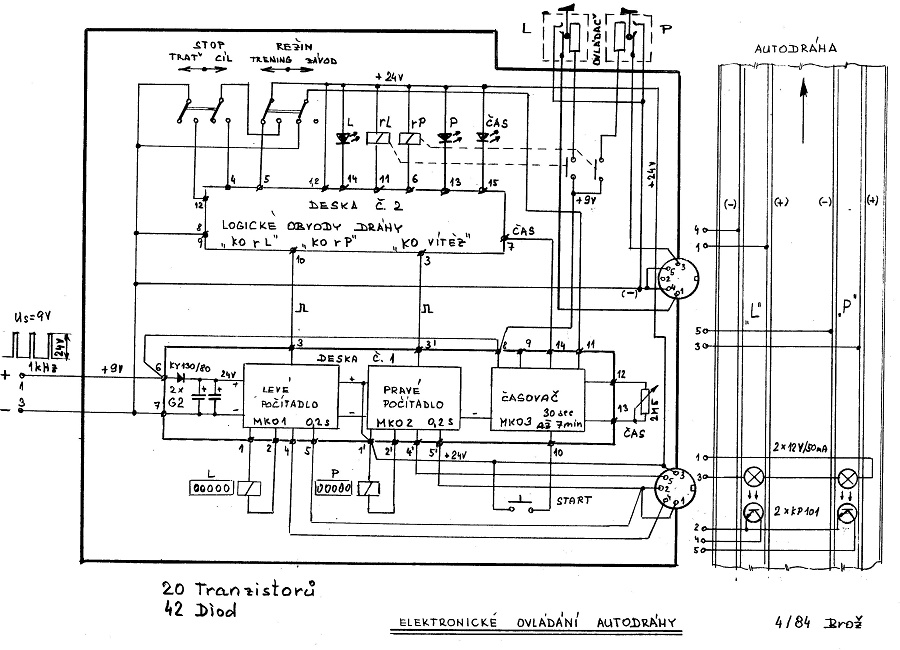 STOP
TRAŤ CÍL
REŽIN
TRENING ZÁVOD
+24V
L
OVLÁDAČ
P
AUTODRÁHA
L
rL
rP
P
ČAS
+24V
+9V
4 5 1,2 14 11 6 13 15
12
DESKA Č. 2
LOGICKÉ OBVODY DRÁHY
„KO rL" „KO rP" „KO VÍTĚZ"
8
9
10
3
ČAS
7
(-) (+) (-) (+)
4
1
5
3
„L" „P"
6 3
2
4 1
(-)
Us=9V
24V
1kHz
+
1
-
3
+9V
6
7
KY130/80
2x
G2
24V
+
-
3
DESKA Č. 1
3'
8 9 14 11
LEVÉ
POČÍTADLO
MKO1 0,2s
+
-
PRAVÉ
POČÍTADLO
MKO2 0,2s
-
ČASOVAČ
MKO3 30 sec
AŽ 7min
12
13
2M5
ČAS
1 2 4 5
1' 2' 4' 5' +24V
10
L
00000
P
00000
START
5 3
2
1
1
2×12V/50mA
3
2×KP101
2
4
5
20 Tranzistorů
42 Diod
ELEKTRONICKÉ OVLÁDÁNÍ AUTODRÁHY
4/84 Brož